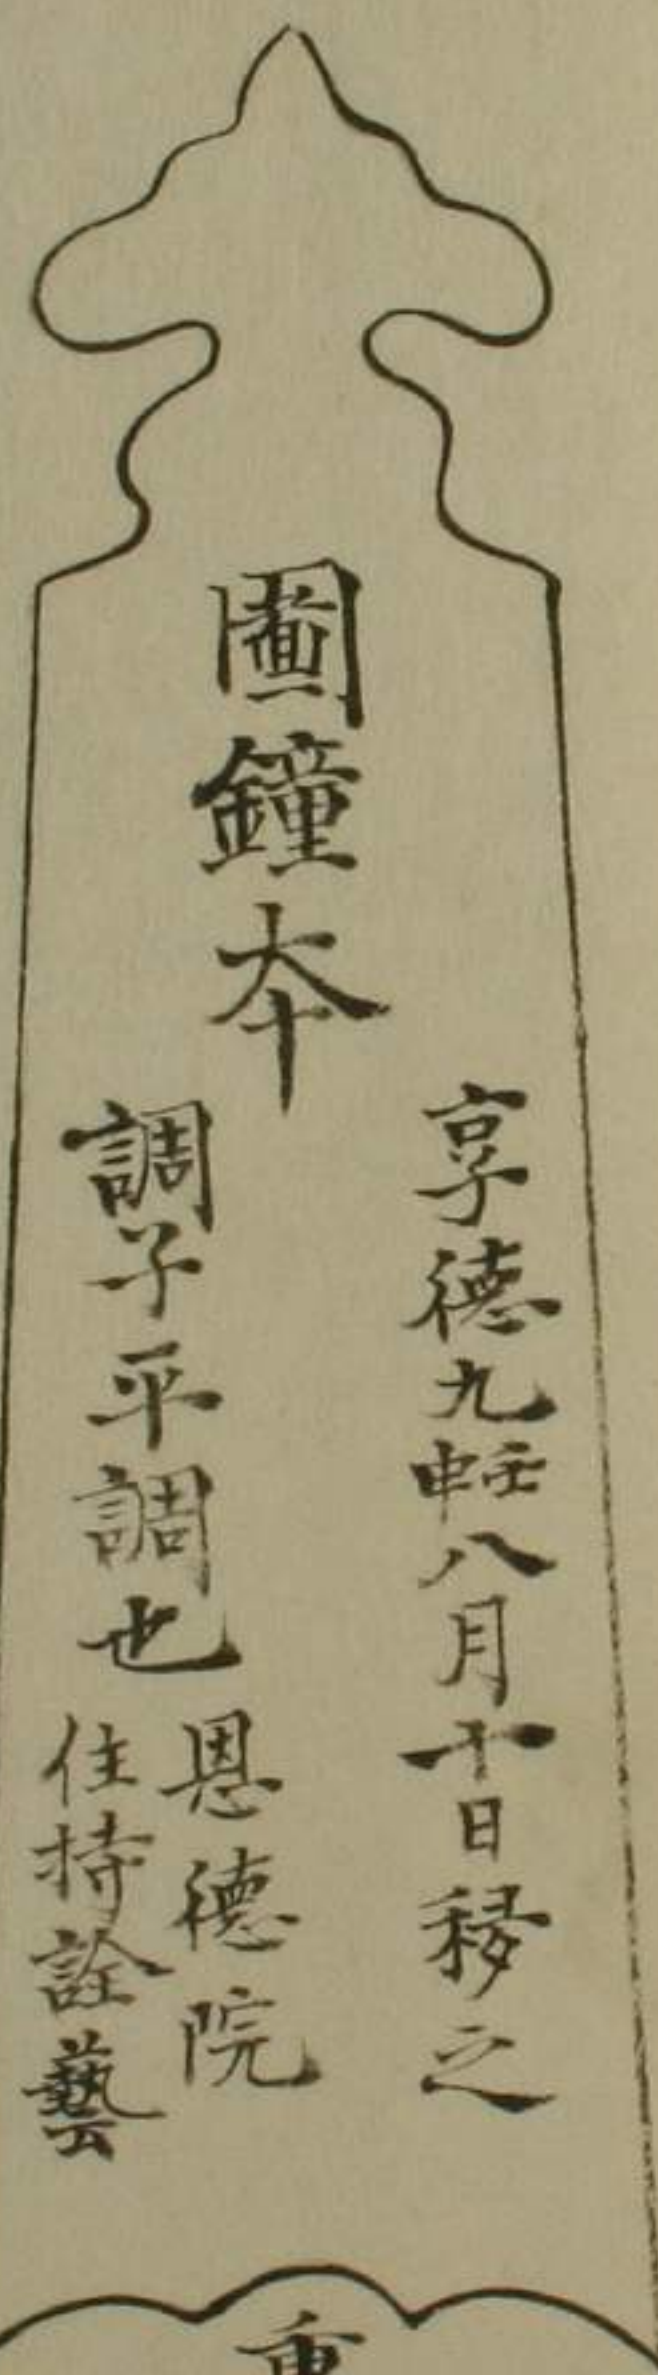 圖鐘本
享德九申壬八月十日移之
調子平調也
恩德院
住持詮藝